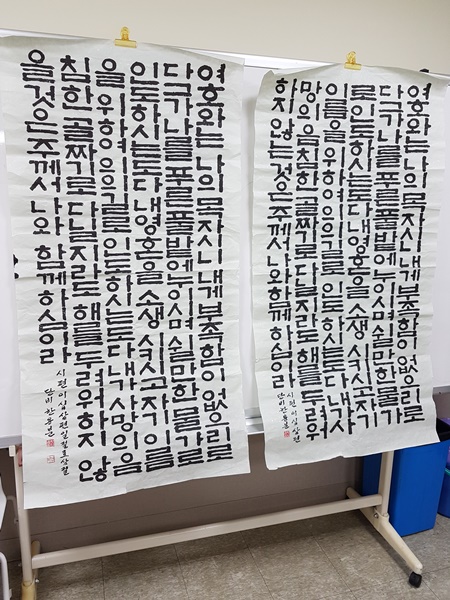 여호와는나의목자시니내게부족함이없으리로
다그가나를푸른풀밭에누이시며쉴만한물가로
인도하시는도다내영혼을소생시키시고자기이름
을위하여의의길로인도하시는도다내가사망의음
침한골짜기로다닐지라도해를두려워하지않
을것은주께서나와함께하심이라
시편 이십삼편
단비
여호와는나의목자시니내게부족함이없으리로
다그가나를푸른풀밭에누이시며쉴만한물가
로인도하시는도다내영혼을소생시키시고자기
이름을위하여의의길로인도하시는도다내가사
망의음침한골짜기로다닐지라도해를두려워
하지않는것은주께서나와함께하심이라
시편 이십삼편
단비